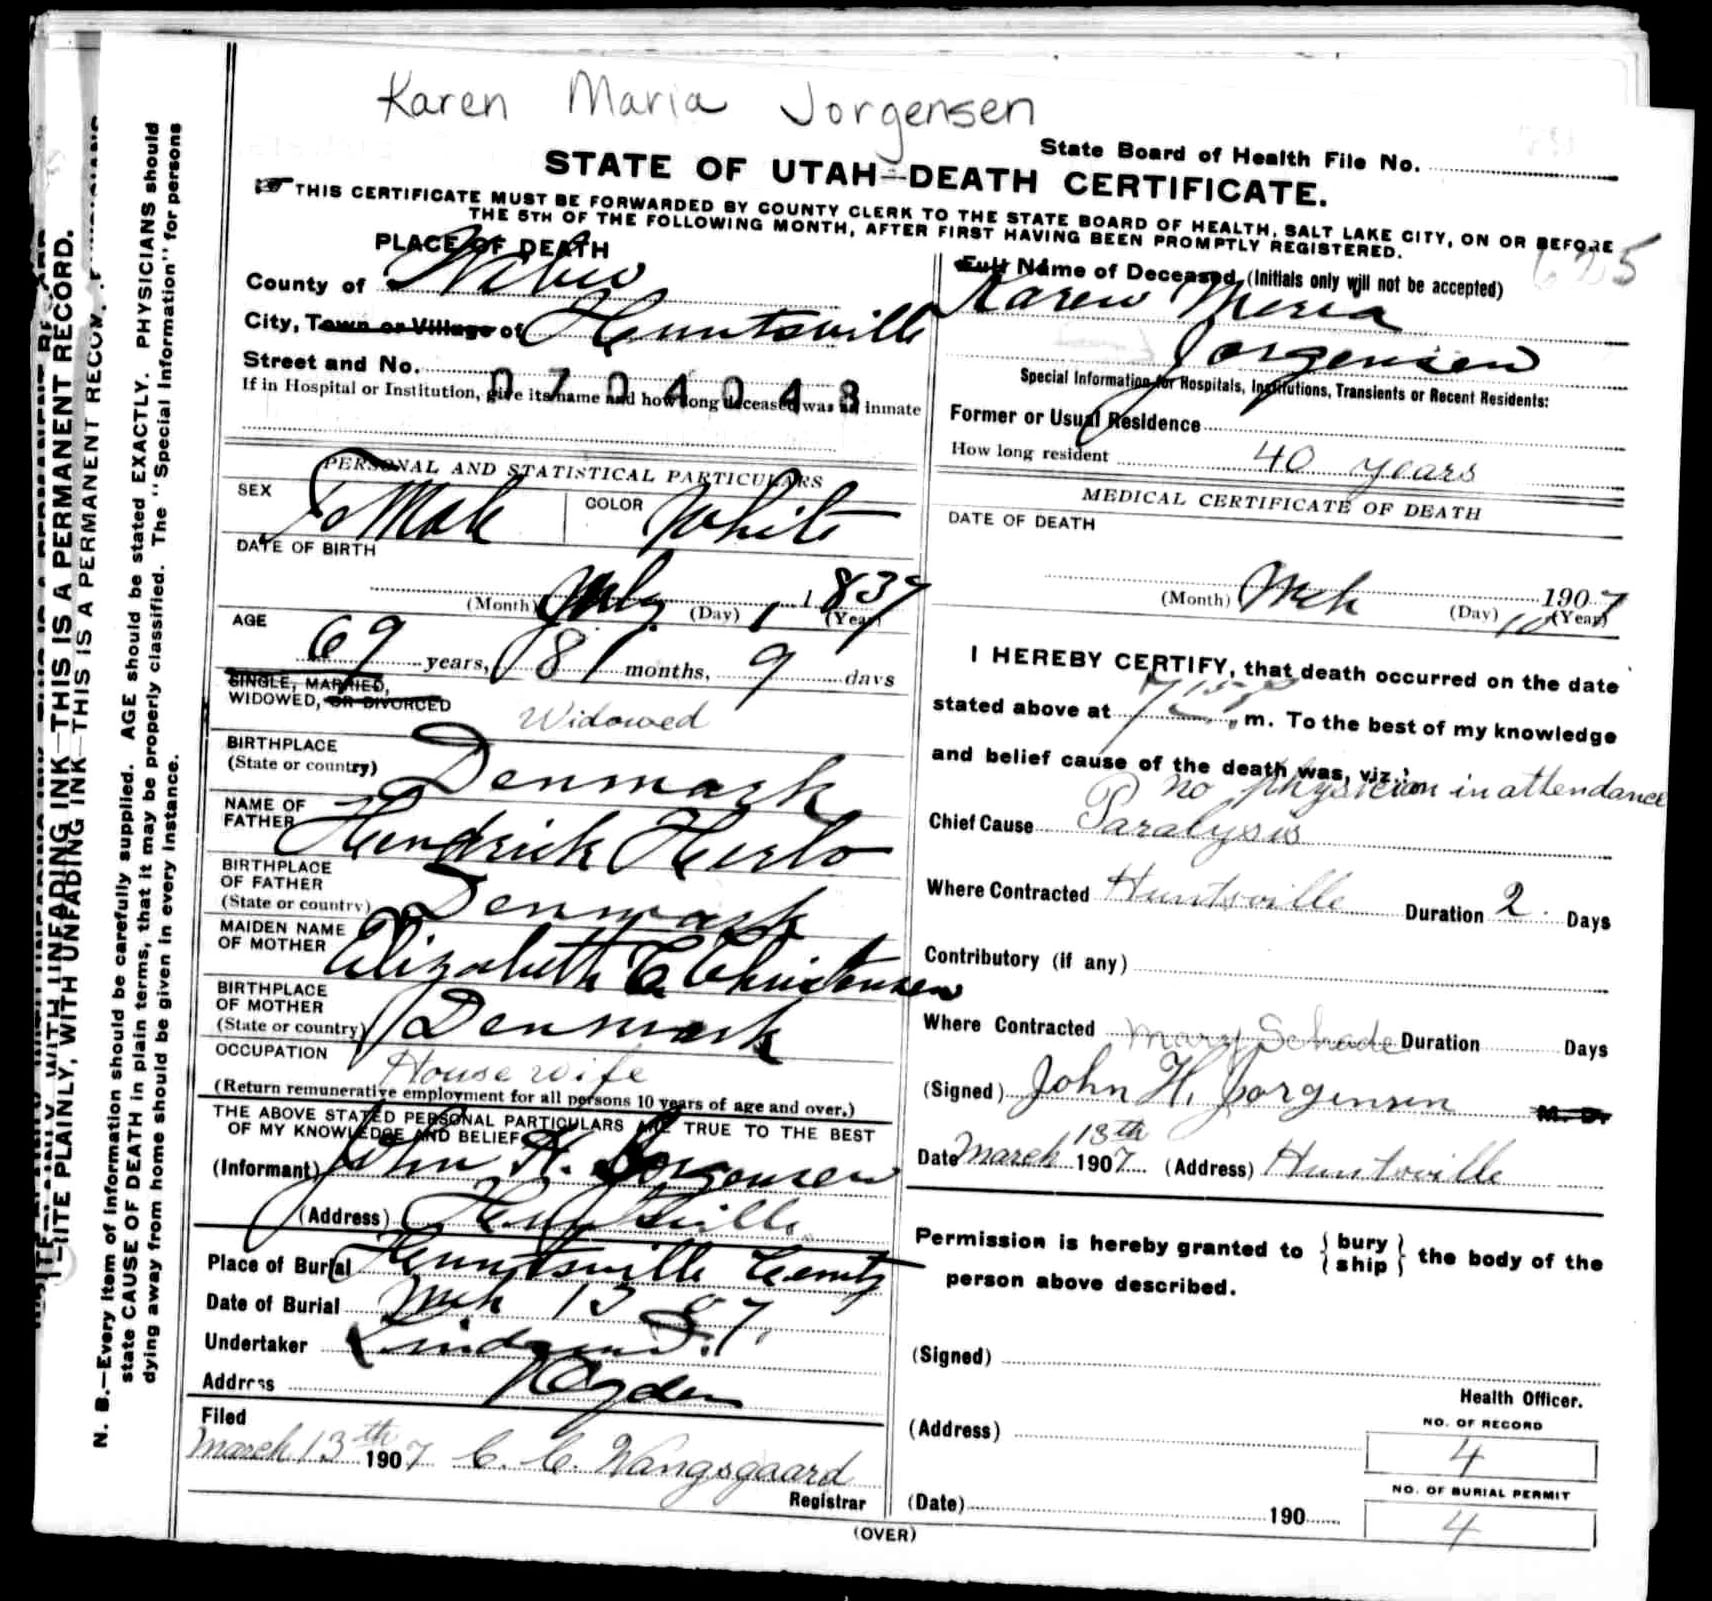 Karen Maria Jorgensen
State Board of Health File No.
STATE OF UTAH—DEATH CERTIFICATE.
THIS CERTIFICATE MUST BE FORWARDED BY COUNTY CLERK TO THE STATE BOARD OF HEALTH, SALT LAKE CITY, ON OR BEFORE
THE 5TH OF THE FOLLOWING MONTH, AFTER FIRST HAVING BEEN PROMPTLY REGISTERED.
PLACE OF DEATH
County of Weber
City, Town or Village of Huntsville
Street and No.
0704048
If in Hospital or Institution, give its name and how long deceased was an inmate
Full Name of Deceased (Initials only will not be accepted)
Karen Meria
Jorgensen
Special Information for Hospitals, Institutions, Transients or Recent Residents:
Former or Usual Residence
How long resident 40 years
PERSONAL AND STATISTICAL PARTICULARS
SEX FeMale COLOR White
DATE OF BIRTH
(Month) July (Day) 1 1837 (Year)
AGE
69 years, 8 months, 9 days
SINGLE, MARRIED,
WIDOWED, OR DIVORCED
Widowed
BIRTHPLACE
(State or country) Denmark
NAME OF
FATHER Hendrick Herlo
BIRTHPLACE
OF FATHER
(State or country) Denmark
MAIDEN NAME
OF MOTHER Elizabeth C Christensen
BIRTHPLACE
OF MOTHER
(State or country) Denmark
OCCUPATION
House wife
(Return remunerative employment for all persons 10 years of age and over.)
THE ABOVE STATED PERSONAL PARTICULARS ARE TRUE TO THE BEST
OF MY KNOWLEDGE AND BELIEF
(Informant) John H. Jorgensen
(Address) Huntsville
Place of Burial Huntsville Cemty
Date of Burial Mch 13 07
Undertaker
Address Ogden
Filed
March 13th 1907 C. C. Wangsgaard
Registrar
MEDICAL CERTIFICATE OF DEATH
DATE OF DEATH
(Month) Mch (Day) 10 1907 (Year)
I HEREBY CERTIFY, that death occurred on the date
stated above at m. To the best of my knowledge
and belief cause of the death was, viz.:
no physician in attendance
Chief Cause Paralysis
Where Contracted Huntsville Duration 2 Days
Contributory (if any)
Where Contracted Mary Schade Duration Days
(Signed) John H. Jorgensen M. D.
Date March 13th 1907 (Address) Huntsville
Permission is hereby granted to { bury ship } the body of the
person above described.
(Signed)
Health Officer.
(Address)
NO. OF RECORD
4
NO. OF BURIAL PERMIT
4
(Date) 190
(OVER)
WRITE PLAINLY, WITH UNFADING INK—THIS IS A PERMANENT RECORD.
N. B.—Every item of information should be carefully supplied. AGE should be stated EXACTLY. PHYSICIANS should
state CAUSE OF DEATH in plain terms, that it may be properly classified. The "Special Information" for persons
dying away from home should be given in every instance.